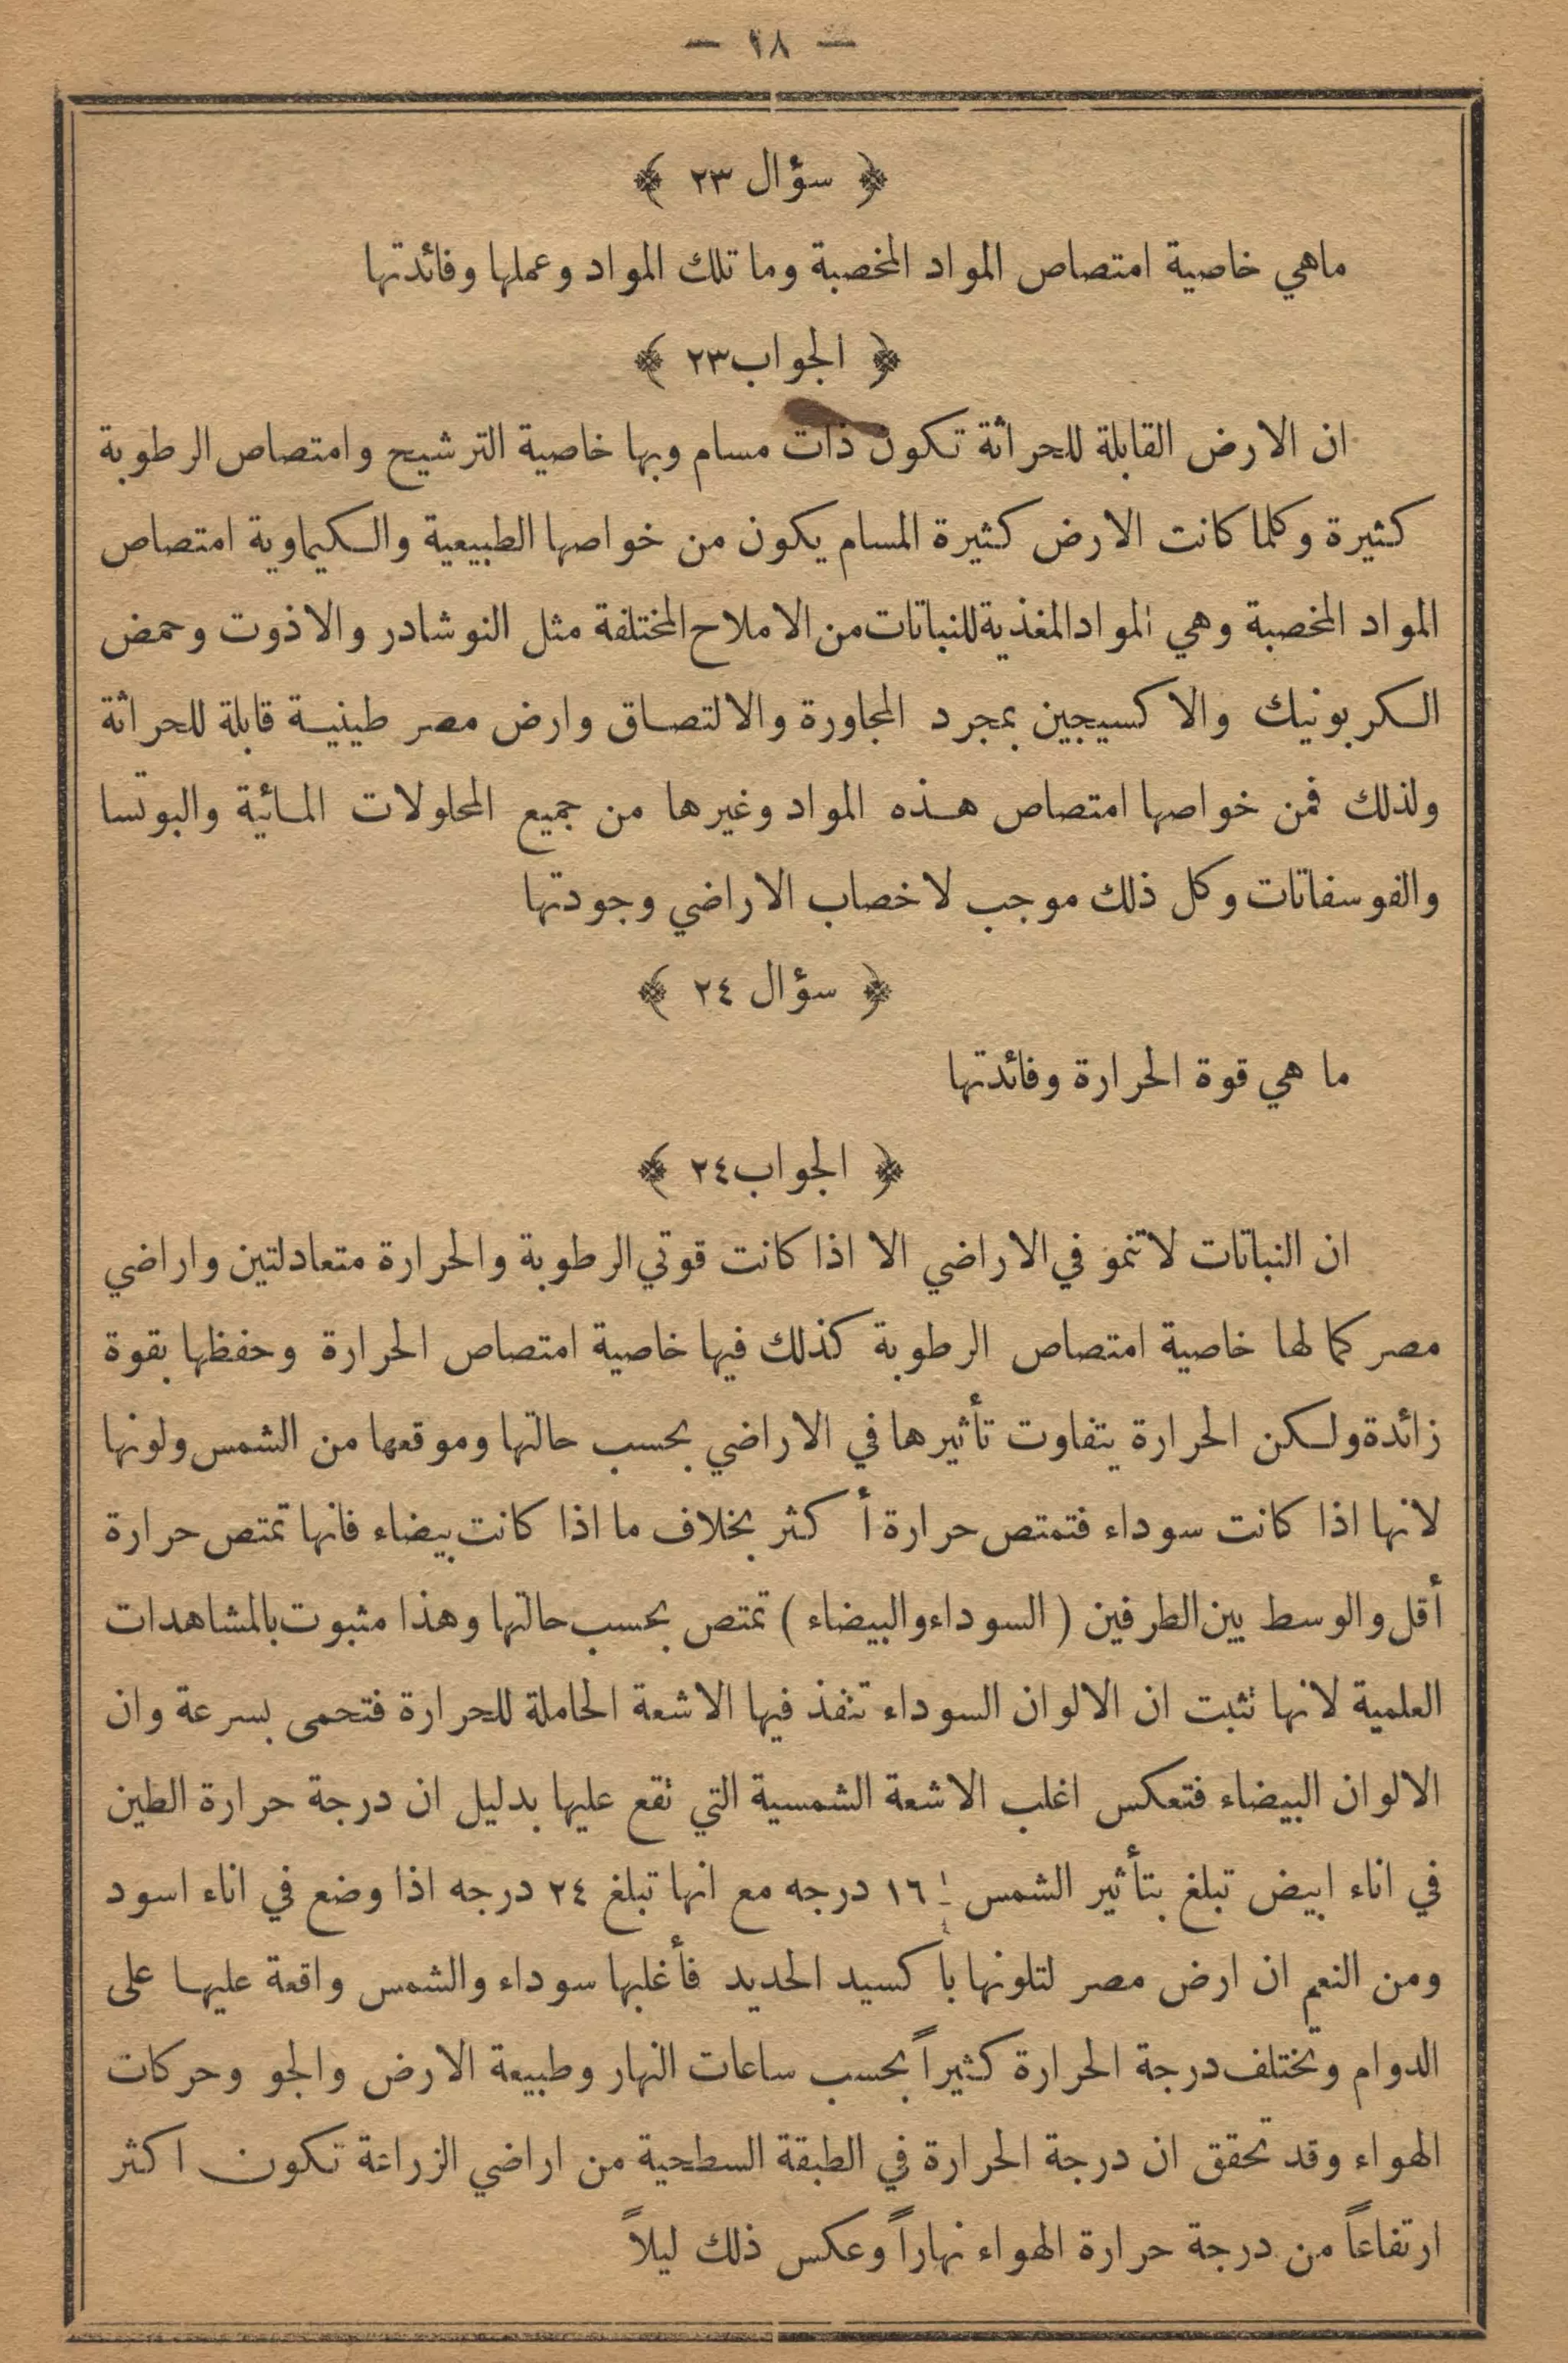 — ٢٨ —
﴿ سؤال ٢٣ ﴾
ماهي خاصية امتصاص المواد المخصبة وما تلك المواد وعملها وفائدتها
﴿ الجواب ٢٣ ﴾
ان الارض القابلة للحراثة تكون ذات مسام وبها خاصية الترشيح وامتصاص الرطوبة
كثيرة وكلما كانت الارض كثيرة المسام يكون من خواصها الطبيعية والكيماوية امتصاص
المواد المخصبة وهي المواد المغذية للنباتات من الاملاح المختلفة مثل النوشادر والاذوت وحمض
الكربونيك والاكسيجين بمجرد المجاورة والالتصاق وارض مصر طينية قابلة للحراثة
ولذلك فمن خواصها امتصاص هذه المواد وغيرها من جميع المحلولات المائية والبوتسا
والفوسفاتات وكل ذلك موجب لاخصاب الاراضي وجودتها
﴿ سؤال ٢٤ ﴾
ما هي قوة الحرارة وفائدتها
﴿ الجواب ٢٤ ﴾
ان النباتات لا تنمو في الاراضي الا اذا كانت قوتي الرطوبة والحرارة متعادلتين واراضي
مصر كما لها خاصية امتصاص الرطوبة كذلك فيها خاصية امتصاص الحرارة وحفظها بقوة
زائدة ولكن الحرارة يتفاوت تأثيرها في الاراضي بحسب حالتها وموقعها من الشمس ولونها
لانها اذا كانت سوداء فتمتص حرارة أكثر بخلاف ما اذا كانت بيضاء فانها تمتص حرارة
أقل والوسط بين الطرفين ( السوداء والبيضاء ) تمتص بحسب حالتها وهذا مثبوت بالمشاهدات
العلمية لانها تثبت ان الالوان السوداء تنفذ فيها الاشعة الحاملة للحرارة فتحمى بسرعة وان
الالوان البيضاء فتعكس اغلب الاشعة الشمسية التي تقع عليها بدليل ان درجة حرارة الطين
في اناء ابيض تبلغ بتأثير الشمس ١٦ درجه مع انها تبلغ ٢٤ درجه اذا وضع في اناء اسود
ومن النعم ان ارض مصر لتلونها باكسيد الحديد فأغلبها سوداء والشمس واقعة عليها على
الدوام وتختلف درجة الحرارة كثيراً بحسب ساعات النهار وطبيعة الارض والجو وحركات
الهواء وقد تحقق ان درجة الحرارة في الطبقة السطحية من اراضي الزراعة تكون اكثر
ارتفاعاً من درجة حرارة الهواء نهاراً وعكس ذلك ليلاً